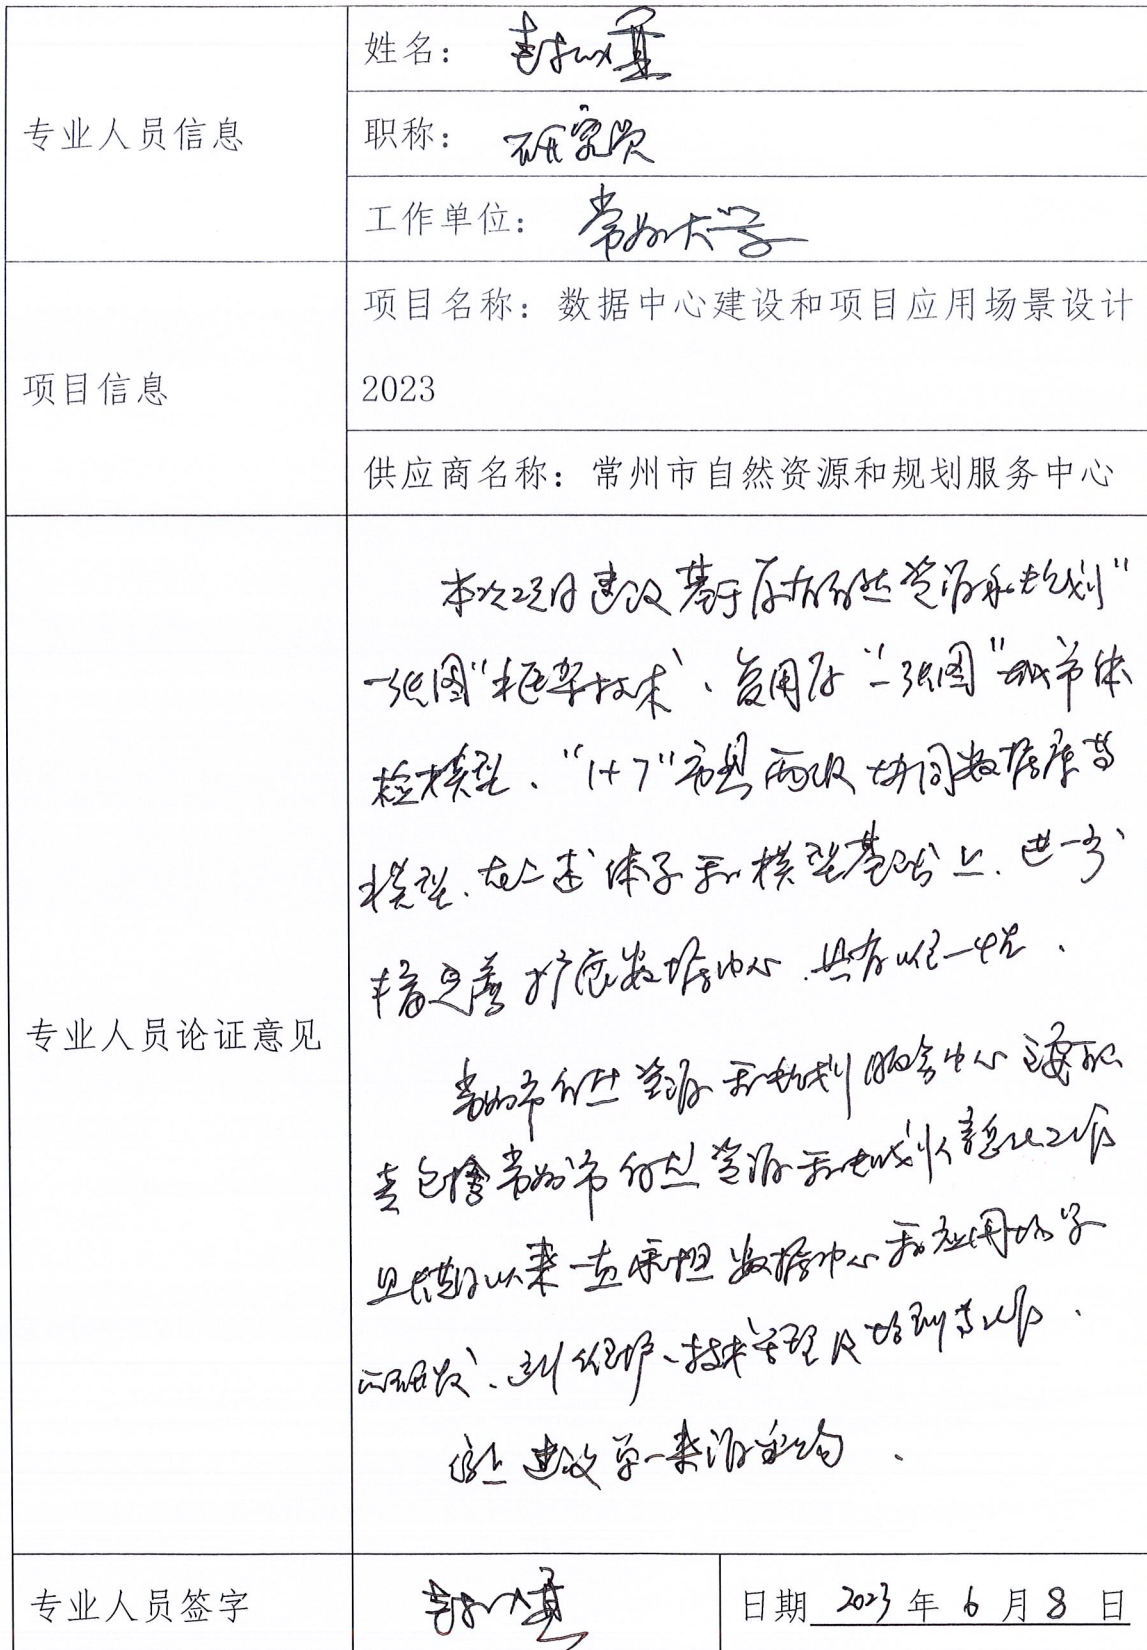 专业人员信息
姓名：
职称： 研究员
工作单位： 常州大学
项目信息
项目名称：数据中心建设和项目应用场景设计
2023
供应商名称：常州市自然资源和规划服务中心
专业人员论证意见
本次项目建设基于原有自然资源和规划"
一张图"框架技术、复用原"一张图"城市体
检模型、"1+7"市县两级协同数据库等
模型.在上述体系和模型基础上.进一步
丰富完善扩展数据中心.具有唯一性.
常州市自然资源和规划服务中心主要职
责包括常州市自然资源和规划信息化工作
且长期以来一直承担数据中心和应用场景
的研发、运行维护、技术管理及培训等工作.
综上建议单一来源采购.
专业人员签字
日期 2023 年 6 月 8 日